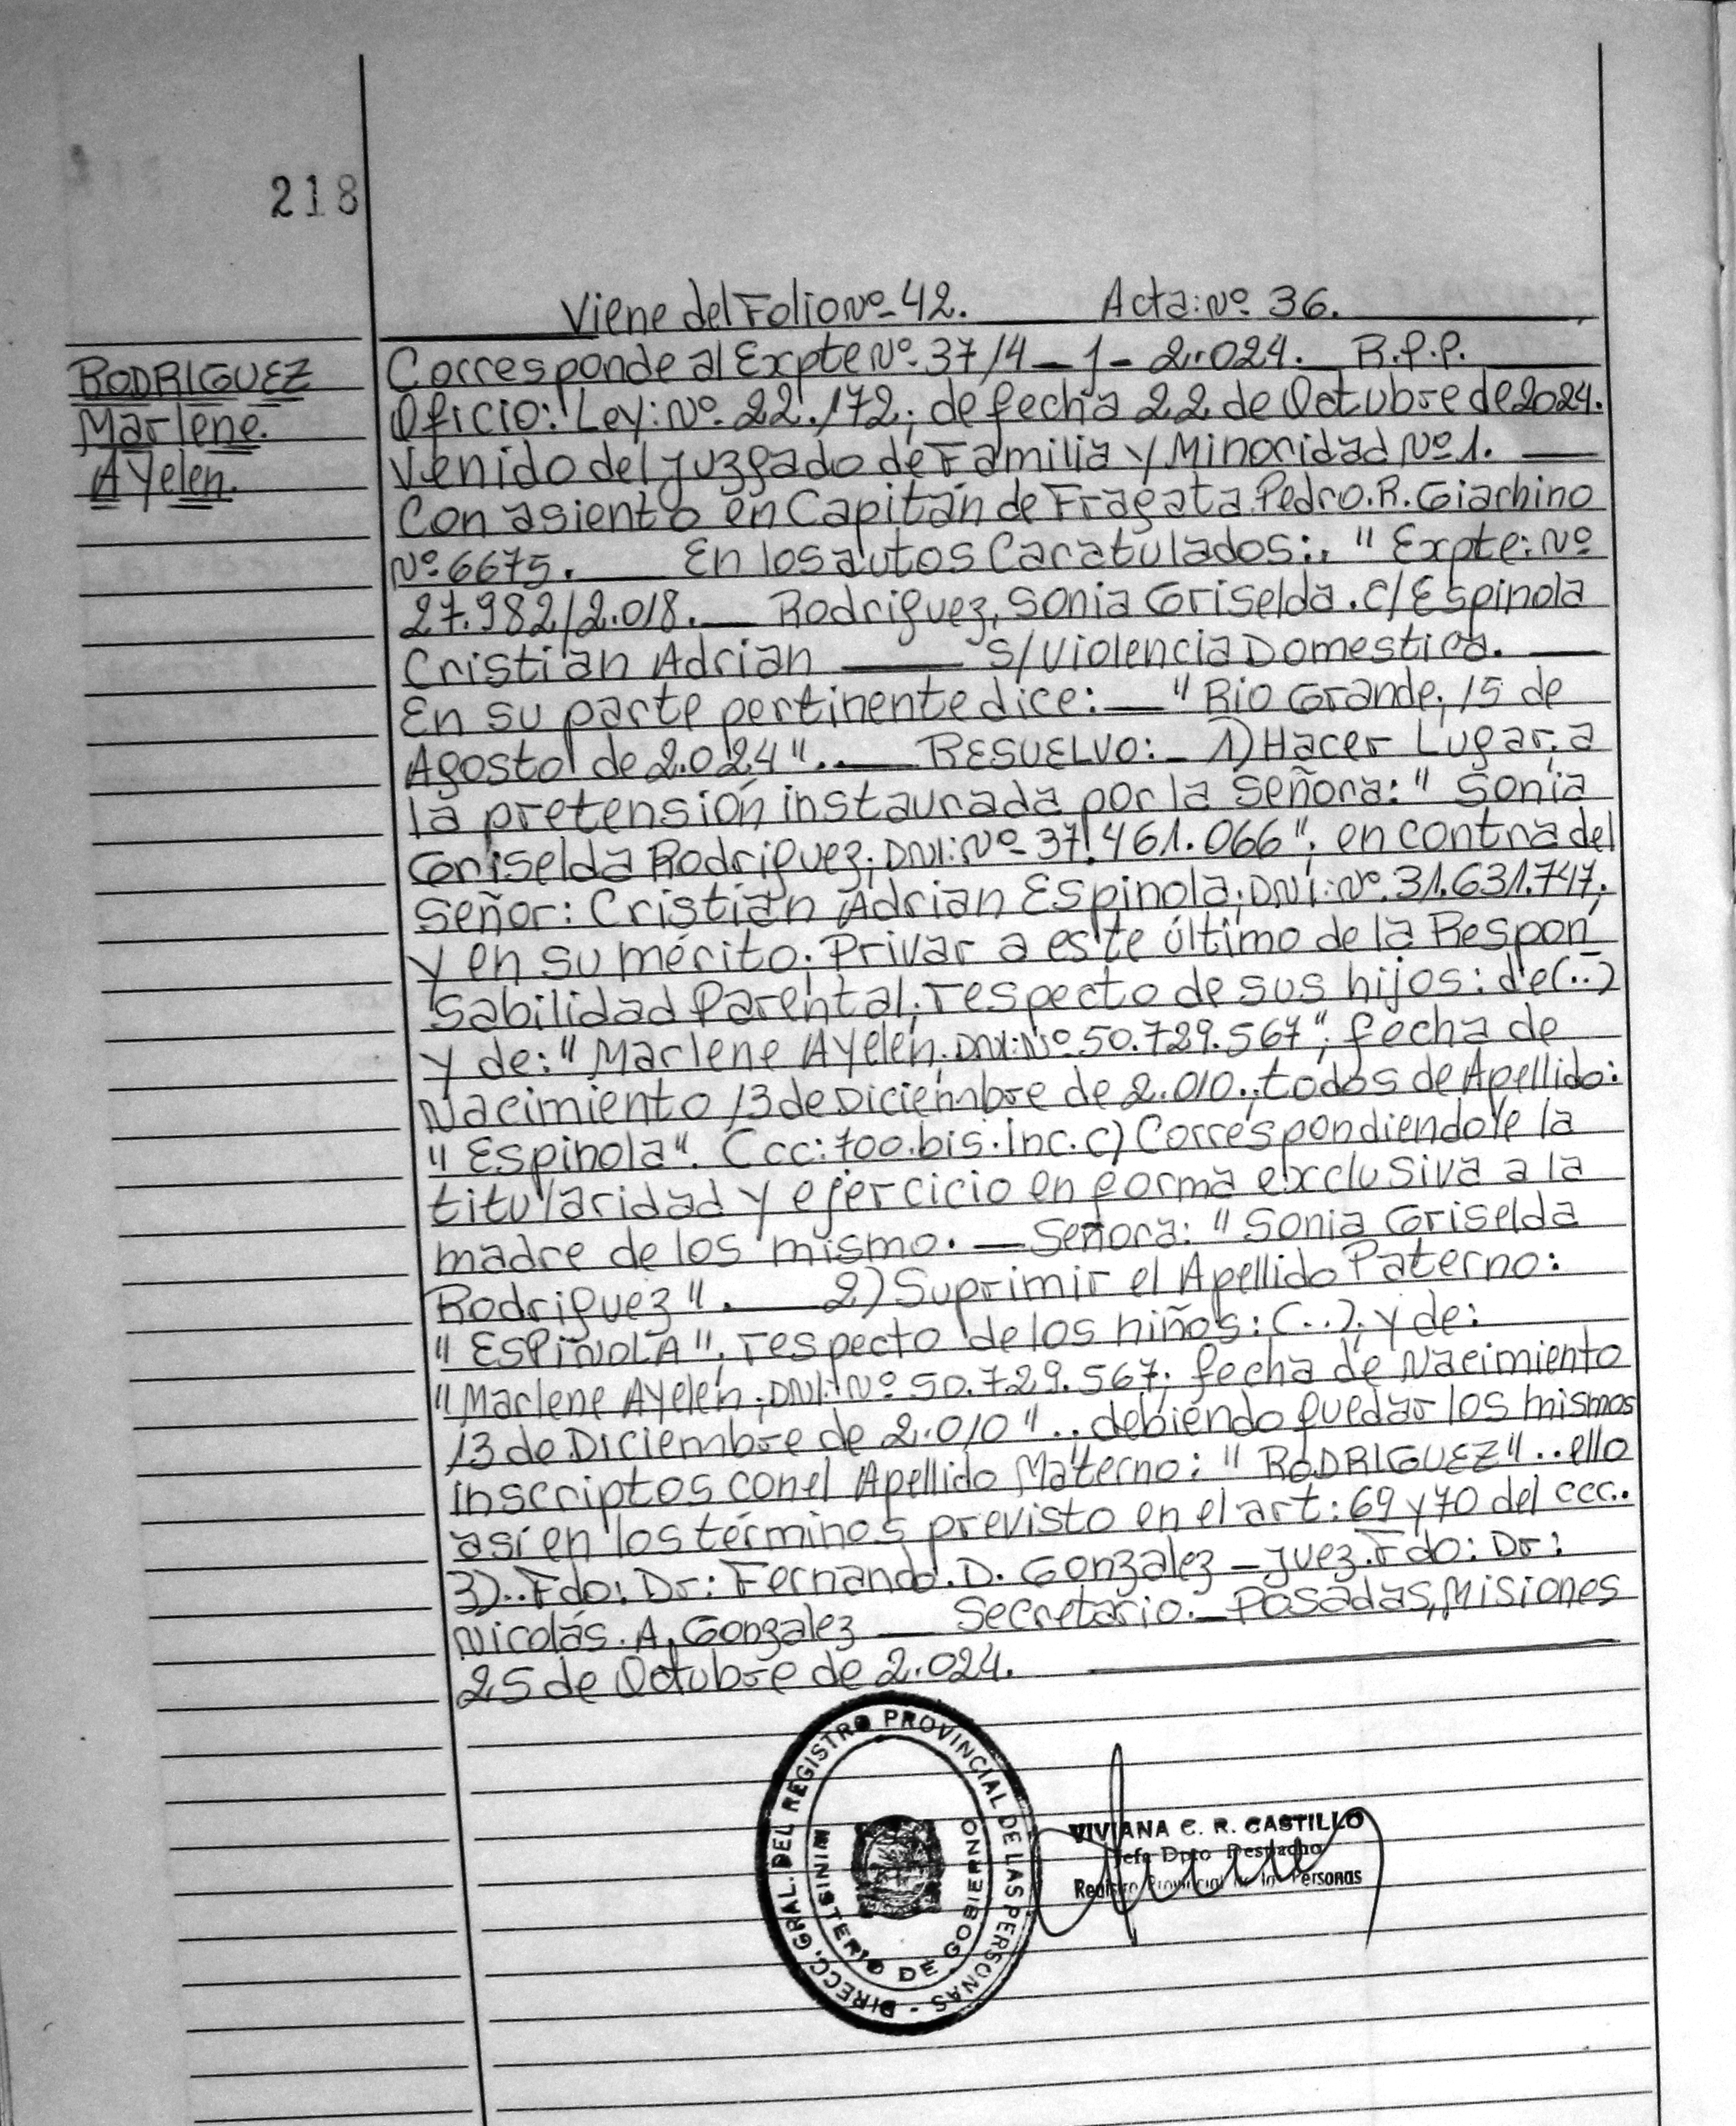 218
Viene del Folio Nº 42. Acta: Nº 36.
RODRIGUEZ
Marlene.
AYelen.
Corresponde al Expte Nº 37/4-1-2.024. R.P.P.
Oficio: Ley: Nº 22.172; de fecha 22 de Octubre de 2024.
Venido del Juzgado de Familia y Minoridad Nº 1.
Con asiento en Capitán de Fragata Pedro.R.Giachino
Nº 6675. En los autos Caratulados:. "Expte: Nº
27.982/2.018. Rodriguez, Sonia Griselda.C/Espinola
Cristian Adrian S/Violencia Domestica.
En su parte pertinente dice: "Rio Grande; 15 de
Agosto de 2.024".. RESUELVO: 1) Hacer Lugar; a
la pretensión instaurada por la Señora: "Sonia
Griselda Rodriguez; DNI: Nº 37.461.066"; en contra del
Señor: Cristian Adrian Espinola; DNI: Nº 31.631.747;
y en su mérito; Privar a este último de la Respon
sabilidad Parental; respecto de sus hijos: de(..)
y de: "Marlene AYelen; DNI: Nº 50.729.567"; fecha de
Nacimiento 13 de Diciembre de 2.010.; todos de Apellido:
"Espinola". Ccc: 700.bis.Inc.c) Correspondiendole la
titularidad y ejercicio en forma exclusiva a la
madre de los mismo. Señora: "Sonia Griselda
Rodriguez". 2) Suprimir el Apellido Paterno:
"ESPIÑOLA"; respecto de los niños: (..); y de:
"Marlene AYelen; DNI: Nº 50.729.567; fecha de Nacimiento
13 de Diciembre de 2.010".. debiendo quedar los mismos
inscriptos con el Apellido Materno: "RODRIGUEZ"..ello
así en los términos previsto en el art: 69 y 70 del ccc..
3)..Fdo: Dr: Fernando.D. Gonzalez - Juez. Fdo: Dr:
Nicolás.A.Gonzalez Secretario. Posadas, Misiones
25 de Octubre de 2.024.
DIRECC. GRAL. DEL REGISTRO PROVINCIAL DE LAS PERSONAS -
MINISTERIO DE GOBIERNO
VIVIANA C. R. CASTILLO
Jefa Dpto Despacho
Registro Provincial de las Personas